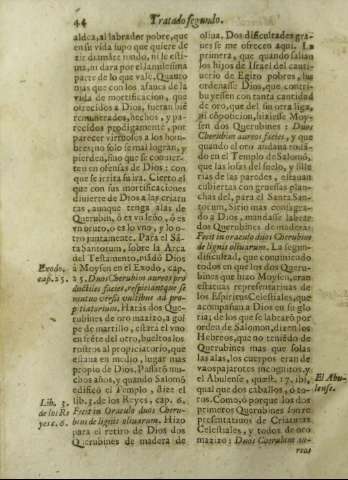 44
Tratado segundo.
aldea, al labrador pobre, que
en su vida supo que quiere de
zir diamãte fundo, ni le esti-
ma, ni dara por el la milesima
parte de lo que vale. Quãto
mas que con los afanes de la
vida de mortificacion, que
ofrecidos a Dios, fueran biẽ
remunerados, hechos, y pa-
recidos prodigamente, por
parecer virtuosos a los hom-
bres; no solo se mal logran, y
pierden, sino que se conuier-
ten en ofensas de Dios: con
que se irrita su ira. Cierto el
que con sus mortificaciones
diuierte de Dios a las criatu
ras, aunque tenga alas de
Querubin, ò es vn leõn, ò es
vn otro, ò es lo vno, y lo o-
tro juntamente. Para el Sã-
ta Santorum, sobre la Arca
del Testamento, mãdò Dios
à Moysen en el Exodo, cap.
25. Duos Cherubim aureos pro
ductiles facies, respiciantque se
mutuo versis vultibus ad pro-
pitiatorium. Haràs dos Que-
rubines de oro mazizo, a gol
pe de martillo, estarà el vno
en frẽte del otro, bueltos los
rostros al propiciatorio, que
estaua en medio, lugar mas
propio de Dios. Passarõ mu-
chos años, y quando Salomõ
edificò el Templo, dize el
lib. 3. de los Reyes, cap. 6.
Fecit in Oraculo duos Cheru-
bim de lignis oliuarum. Hizo
para el retiro de Dios dos
Querubines de madera de
Exodo.
cap. 25.
Lib. 3.
de los Re
yes c. 6.
oliua. Dos dificultades gra-
ues se me ofrecen aqui. La
primera, que quando salian
los hijos de Israel del cauti-
uerio de Egito pobres, les
ordenasse Dios, que contri-
buyessen con tanta cantidad
de oro, que del sin otra liga,
ni cõposicion, hiziesse Moy-
sen dos Querubines: Duos
Cherubim aureos facies, y que
quando el oro andaua rodã-
do en el Templo de Salomõ,
que las losas del suelo, y sille
rias de las paredes, estauan
cubiertas con gruessas plan-
chas del, para el Santa San-
torum, Sitio mas consagra-
do a Dios, mandasse labrar
dos Querubines de madera:
Fecit in oraculo duos Cherubim
de lignis oliuarum. La segun-
dificultad, que conuiniendo
todos en que los dos Queru-
bines que hizo Moysen, eran
estatuas representatiuas de
los Espiritus Celestiales, que
acompañan a Dios en su glo
ria; de los que se labrarõ por
orden de Salomon, dizen los
Hebreos, que no tenieñdo de
Querubines mas que solas
las alas, los cuerpos eran de
vnos paxarotes incognitos, y
el Abulense, quæst. 17. ibi,
qual que dos caballos, ò to-
ros. Como, ò porque los dos
primeros Querubines son re
presentatiuos de Criaturas
Celestiales, y todos de oro
mazizo; Duos Cherubim au-
reos
El Abu-
lense.